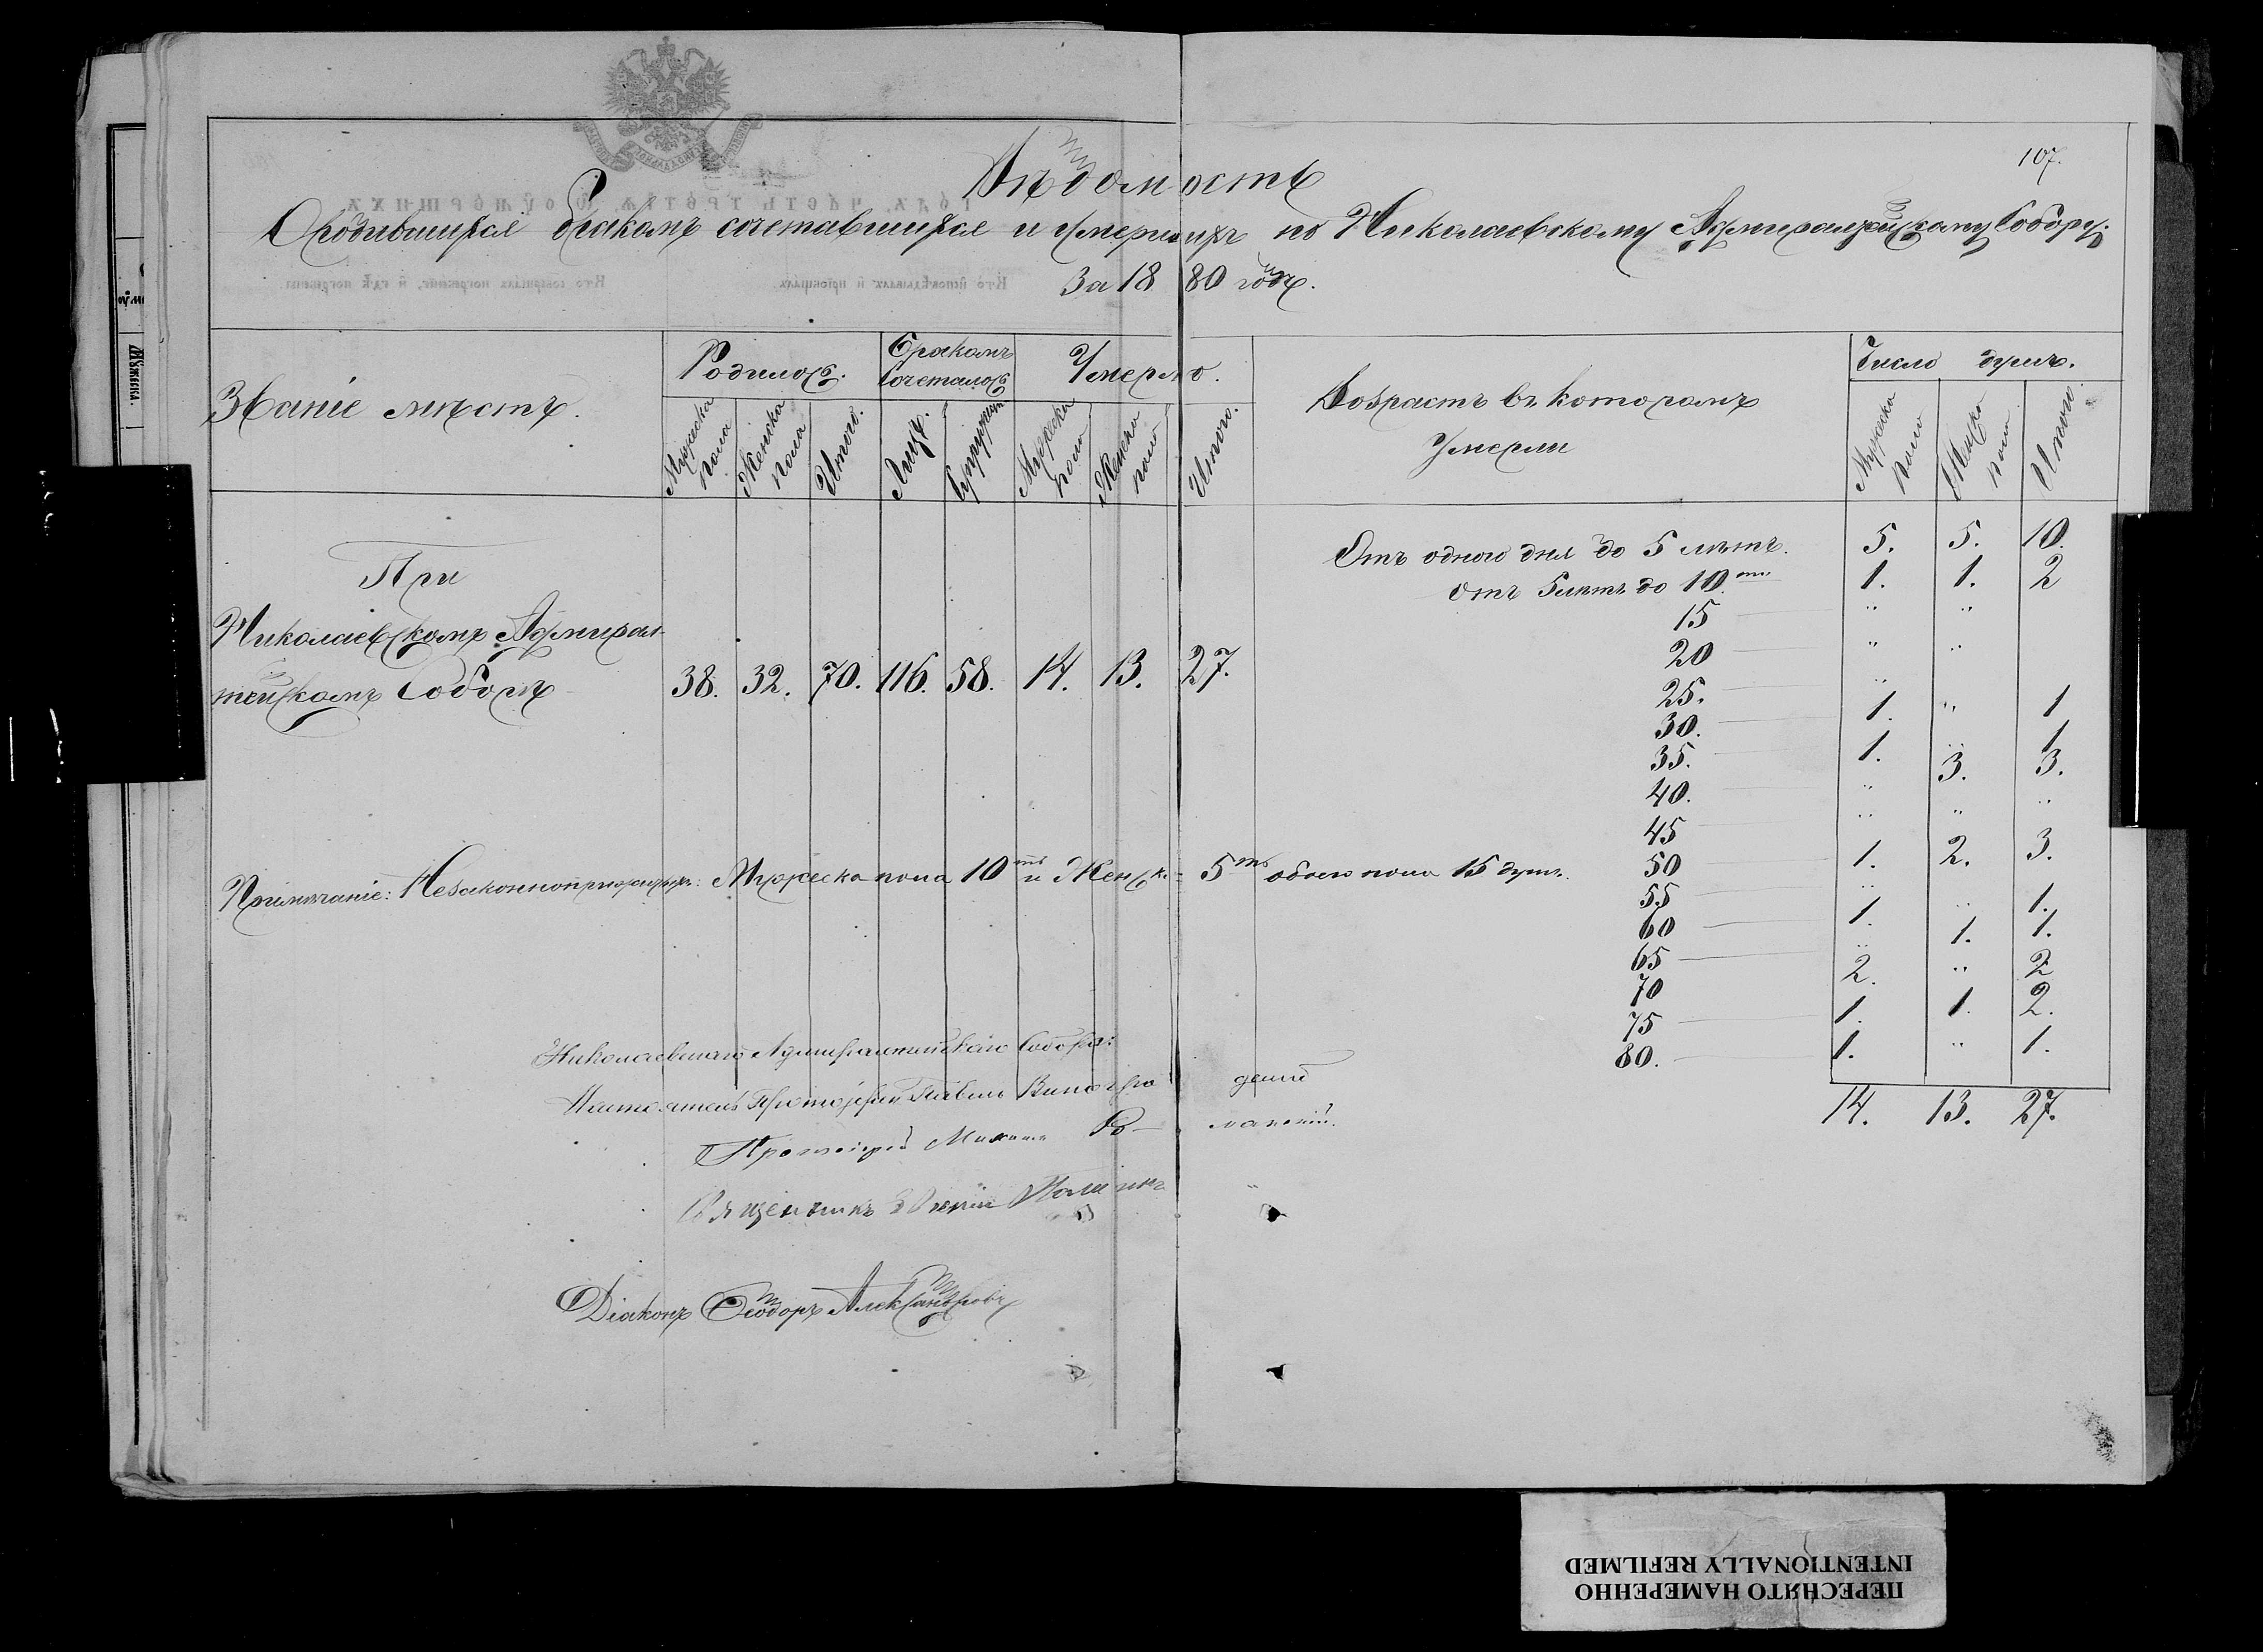 107.
Вѣдомость
О родившихся бракомъ сочетавшихся и умершихъ по Николаевскому Адмиралтейскому Собору.
За 1880 годъ.
Званіе мѣстъ.
Родилось.
Бракомъ Сочеталось
Умерло.
Возрастъ въ которомъ Умерли
Число душъ.
Мужеска пола
Женска пола
Итого.
Лицъ.
Супружествъ
Мужеска пола
Женска пола
Итого.
Мужеска пола
Женска пола
Итого
При
Николаевскомъ Адмирал-
тейскомъ Соборѣ
38. 32. 70. 116. 58. 14. 13. 27.
Отъ одного дня до 5 лѣтъ. 5. 5. 10.
отъ 5 лѣтъ до 10ти 1. 1. 2
15 " "
20 " "
25. "
30. 1. " 1
35. 1. " 1
40. " 3. 3.
45 " " "
50 1. 2. 3.
55 " "
60 1. 1.
65 " 1. 1.
70 2. " 2
75 1. 1. 2.
80. 1. " 1.
14. 13. 27.
Примѣчаніе: Незаконноприжитыхъ: Мужеска пола 10ть и Женск. 5ть обоего пола 15 душъ.
Николаевскаго Адмиралтейскаго Собора:
Настоятель Протоіерей Павелъ Виноградовъ
Протоіерей
Священникъ
Діаконъ Ѳеодоръ Александровъ
ПЕРЕСНЯТО НАМЕРЕННО
INTENTIONALLY REFILMED